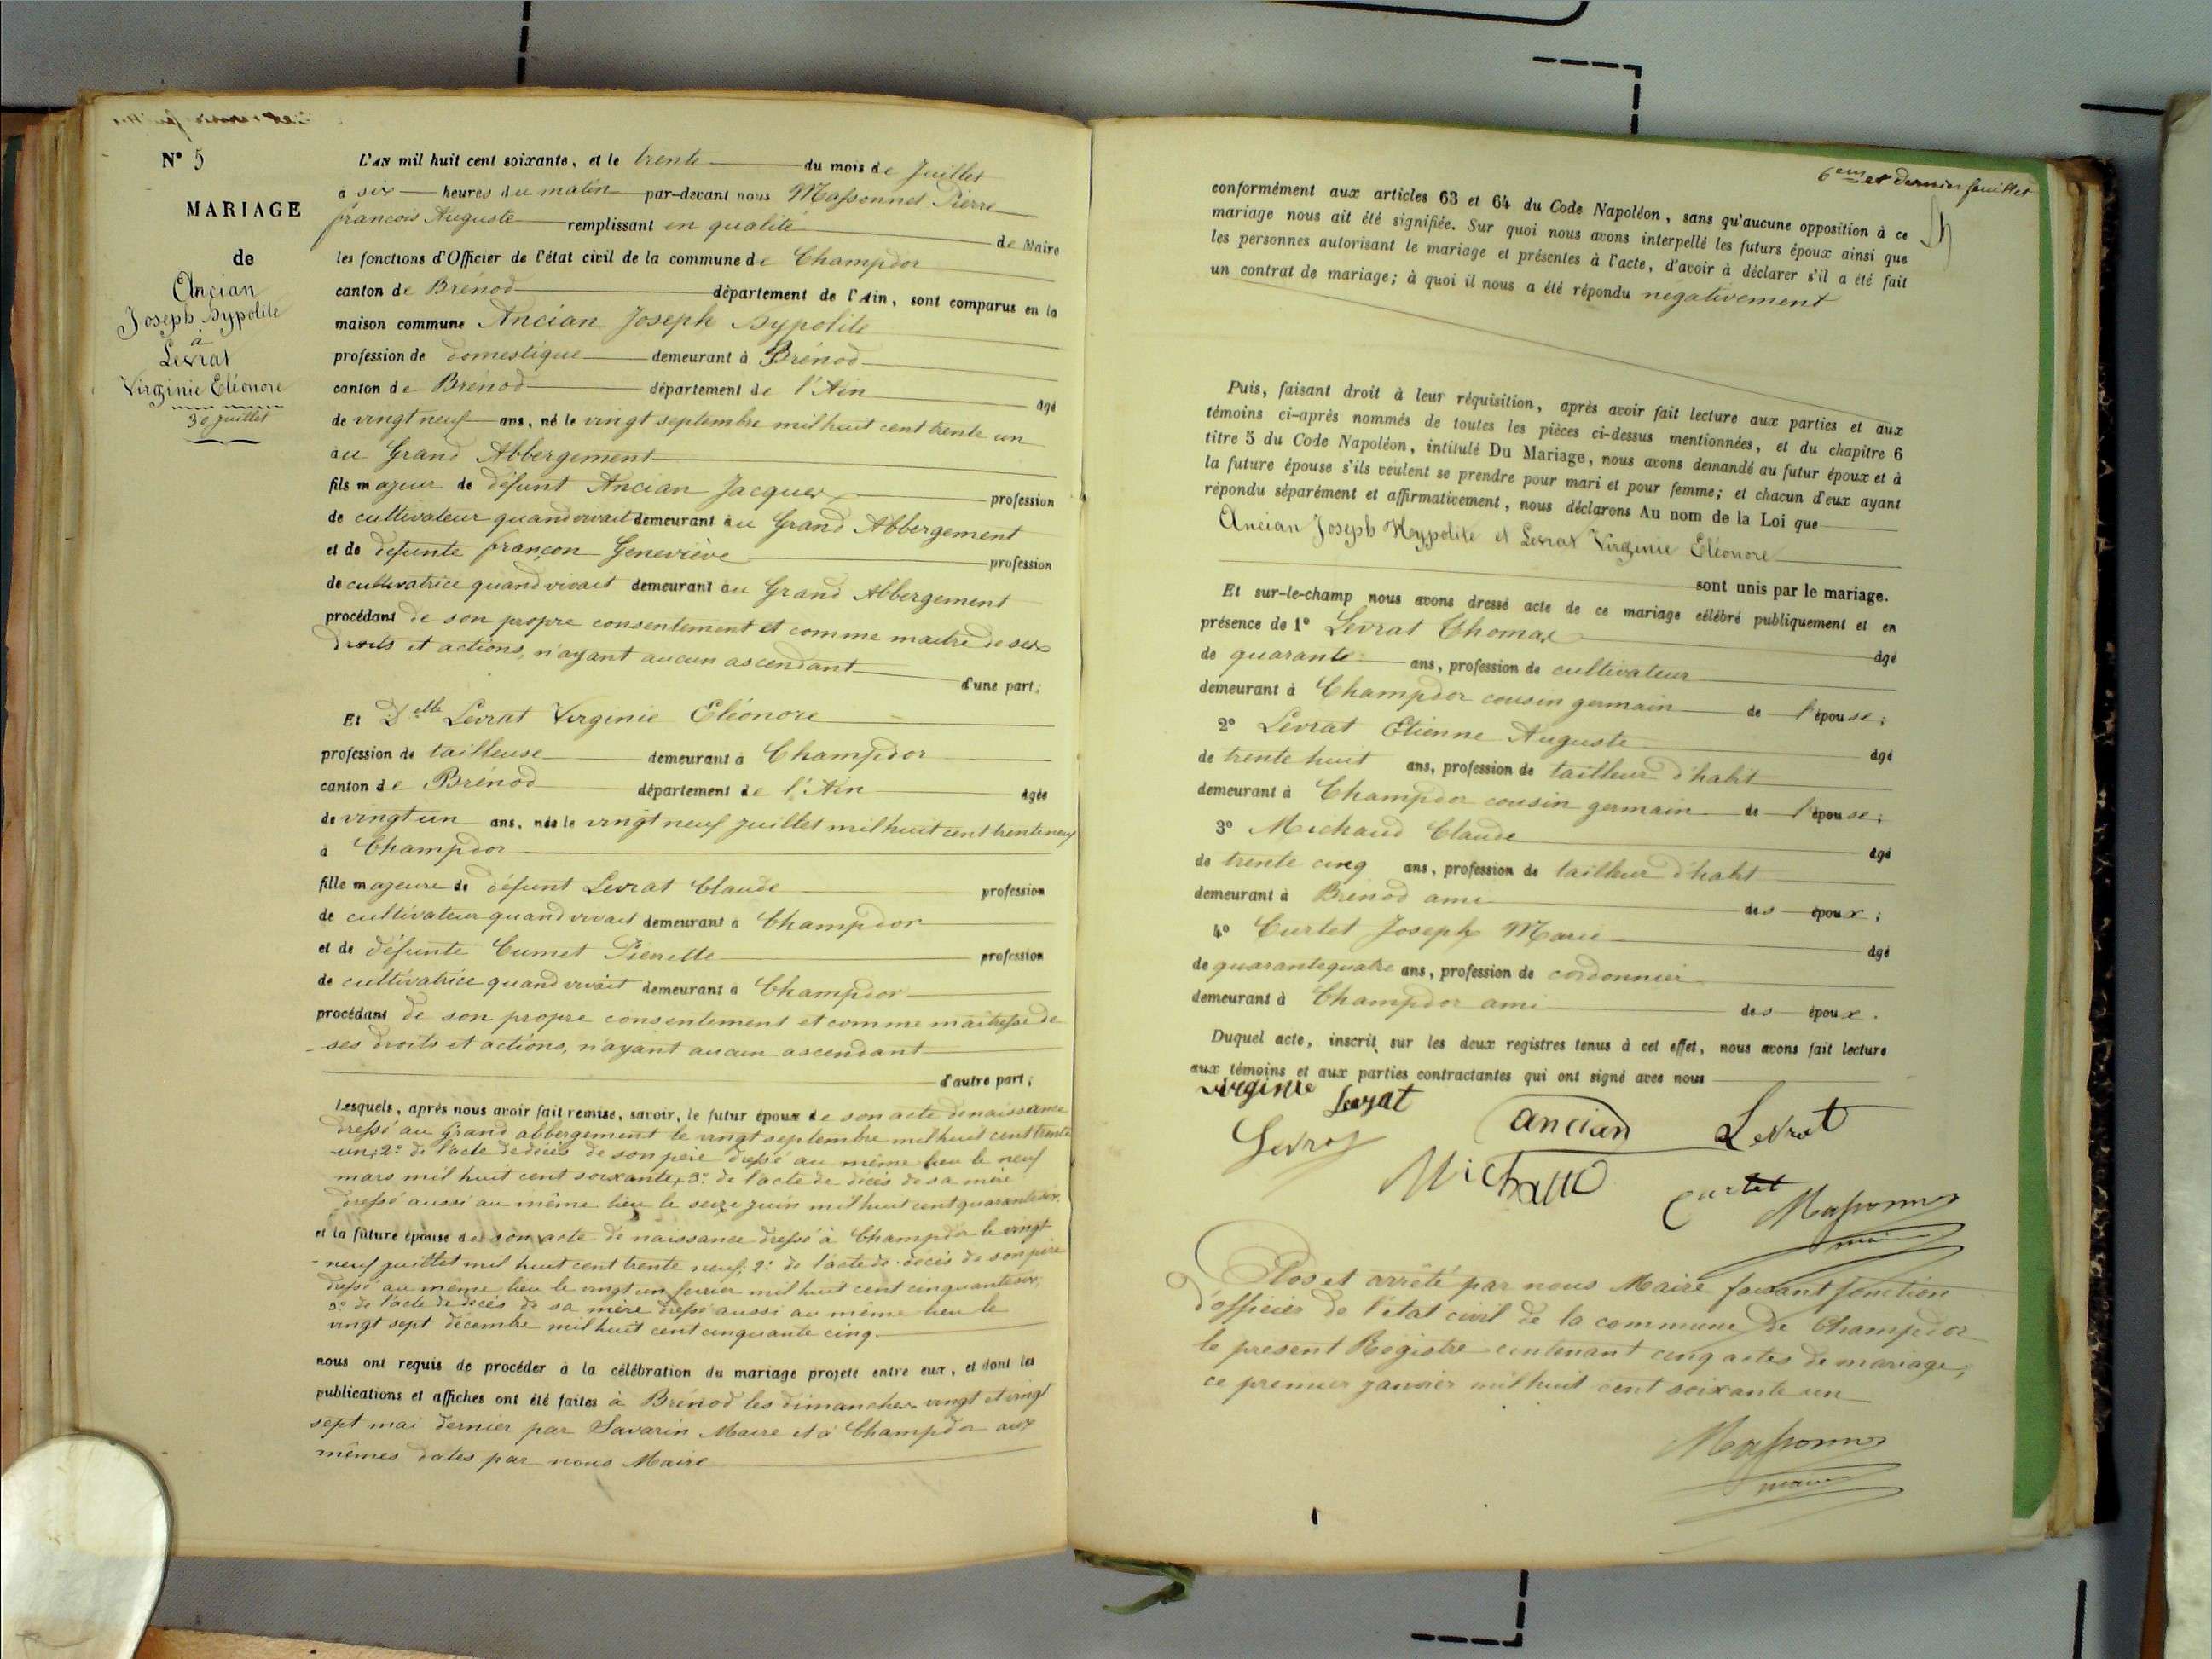 N° 5
MARIAGE
de
Ancian
Joseph Hypolite
à
Levrat
Virginie Eléonore
30 juillet
L'AN mil huit cent soixante, et le trente du mois de Juillet
à six heures du matin par-devant nous Massonnet Pierre
françois Auguste remplissant en qualité de Maire
les fonctions d'Officier de l'état civil de la commune de Champdor
canton de Brénod département de l'Ain, sont comparus en la
maison commune Ancian Joseph Hypolite
profession de domestique demeurant à Brénod
canton de Brénod département de l'Ain âgé
de vingt neuf ans, né le vingt septembre mil huit cent trente un
au Grand Abbergement
fils majeur de défunt Ancian Jacques profession
de cultivateur quand vivait demeurant au Grand Abbergement
et de défunte françon Geneviève profession
de cultivatrice quand vivait demeurant au Grand Abbergement
procédant de son propre consentement et comme maitre de ses
droits et actions, n'ayant aucun ascendant
d'une part;
Et Delle Levrat Virginie Eléonore
profession de tailleuse demeurant à Champdor
canton de Brénod département de l'Ain âgée
de vingt un ans, née le vingt neuf juillet mil huit cent trente neuf
à Champdor
fille majeure de défunt Levrat Claude profession
de cultivateur quand vivait demeurant à Champdor
et de défunte Cumet Pierrette profession
de cultivatrice quand vivait demeurant à Champdor
procédant de son propre consentement et comme maitresse de
ses droits et actions, n'ayant aucun ascendant
d'autre part;
Lesquels, après nous avoir fait remise, savoir, le futur époux de son acte de naissance
dressé au Grand abbergement le vingt septembre mil huit cent trente
un; 2° de l'acte de décès de son père dressé au même lieu le neuf
mars mil huit cent soixante; 3° de l'acte de décès de sa mère
dressé aussi au même lieu le seize juin mil huit cent quarante six,
et la future épouse de son acte de naissance dressé à Champdor le vingt
neuf juillet mil huit cent trente neuf; 2° de l'acte de décès de son père
dressé au même lieu le vingt un février mil huit cent cinquante six;
3° de l'acte de décès de sa mère dressé aussi au même lieu le
vingt sept décembre mil huit cent cinquante cinq.
nous ont requis de procéder à la célébration du mariage projeté entre eux, et dont les
publications et affiches ont été faites à Brénod les dimanches vingt et vingt
sept mai dernier par Savarin Maire et à Champdor aux
mêmes dates par nous Maire
6eme et dernier feuillet
conformément aux articles 63 et 64 du Code Napoléon, sans qu'aucune opposition à ce
mariage nous ait été signifiée. Sur quoi nous avons interpellé les futurs époux ainsi que
les personnes autorisant le mariage et présentes à l'acte, d'avoir à déclarer s'il a été fait
un contrat de mariage; à quoi il nous a été répondu négativement
Puis, faisant droit à leur réquisition, après avoir fait lecture aux parties et aux
témoins ci-après nommés de toutes les pièces ci-dessus mentionnées, et du chapitre 6
titre 5 du Code Napoléon, intitulé Du Mariage, nous avons demandé au futur époux et à
la future épouse s'ils veulent se prendre pour mari et pour femme; et chacun d'eux ayant
répondu séparément et affirmativement, nous déclarons Au nom de la Loi que
Ancian Joseph Hypolite et Levrat Virginie Eléonore
sont unis par le mariage.
Et sur-le-champ nous avons dressé acte de ce mariage célébré publiquement et en
présence de 1° Levrat Thomas âgé
de quarante ans, profession de cultivateur
demeurant à Champdor cousin germain de l'épouse;
2° Levrat Etienne Auguste âgé
de trente huit ans, profession de tailleur d'habit
demeurant à Champdor cousin germain de l'épouse;
3° Michaud Claude âgé
de trente cinq ans, profession de tailleur d'habit
demeurant à Brénod ami des époux;
4° Curtet Joseph Marie âgé
de quarante quatre ans, profession de cordonnier
demeurant à Champdor ami des époux.
Duquel acte, inscrit sur les deux registres tenus à cet effet, nous avons fait lecture
aux témoins et aux parties contractantes qui ont signé avec nous
virginie Levrat
ancian Levrat
Levrat
Michaud
Curtet Massonnet
maire
Clos et arrêté par nous Maire faisant fonction
d'officier de l'état civil de la commune de Champdor
le present Registre contenant cinq actes de mariage,
ce premier janvier mil huit cent soixante un
Massonnet
maire